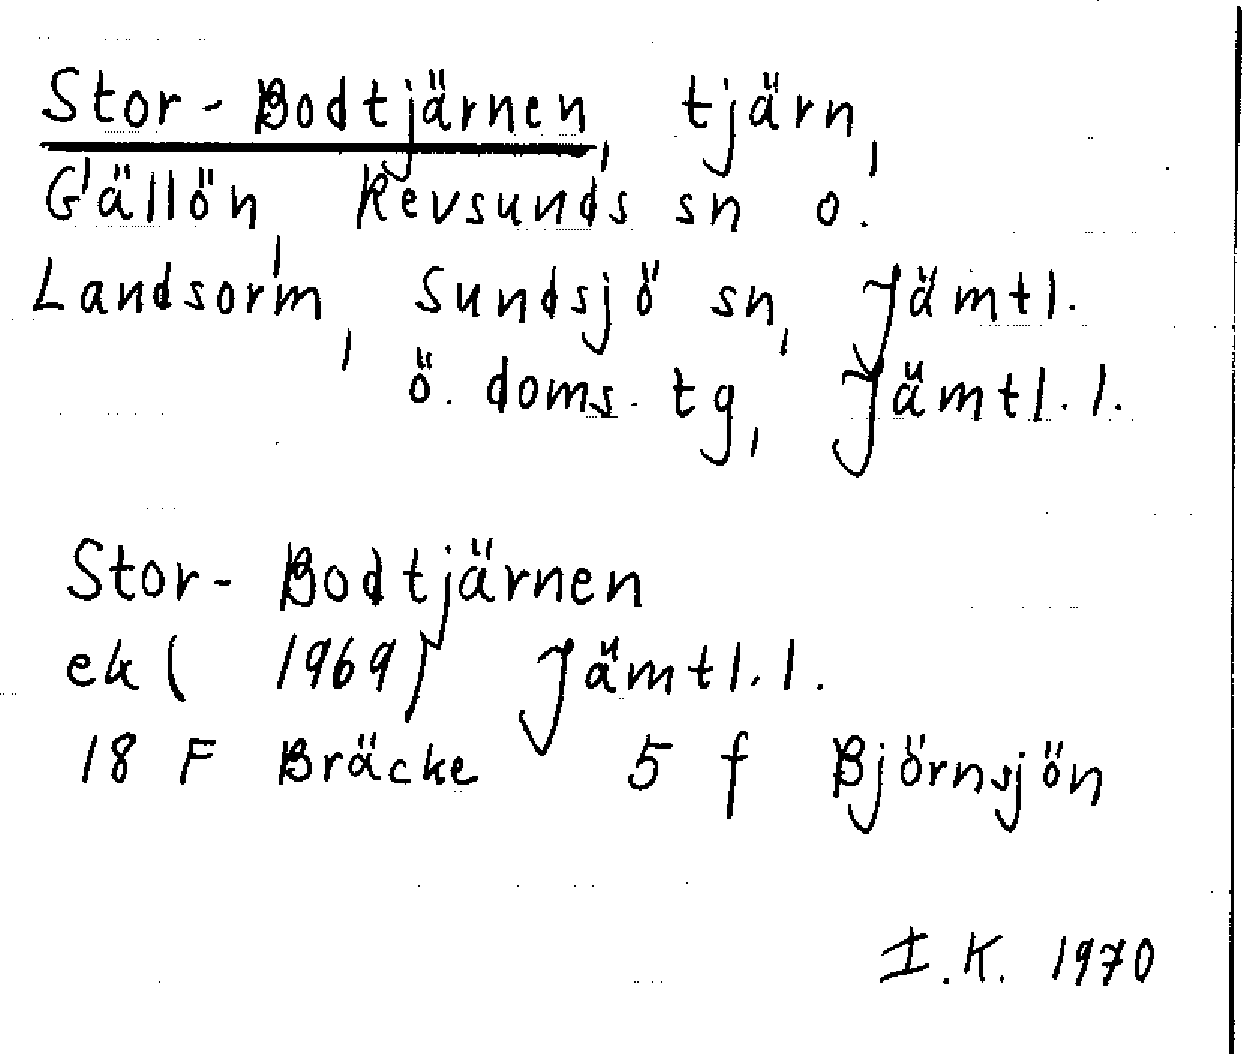 Stor-Bodtjärnen, tjärn,
Gällön, Revsunds sn o.
Landsorm, Sundsjö sn, Jämtl.
ö. doms. tg, Jämtl. l.
Stor-Bodtjärnen
ek (1969) Jämtl. l.
18 F Bräcke 5 f Björnsjön
I.K. 1970